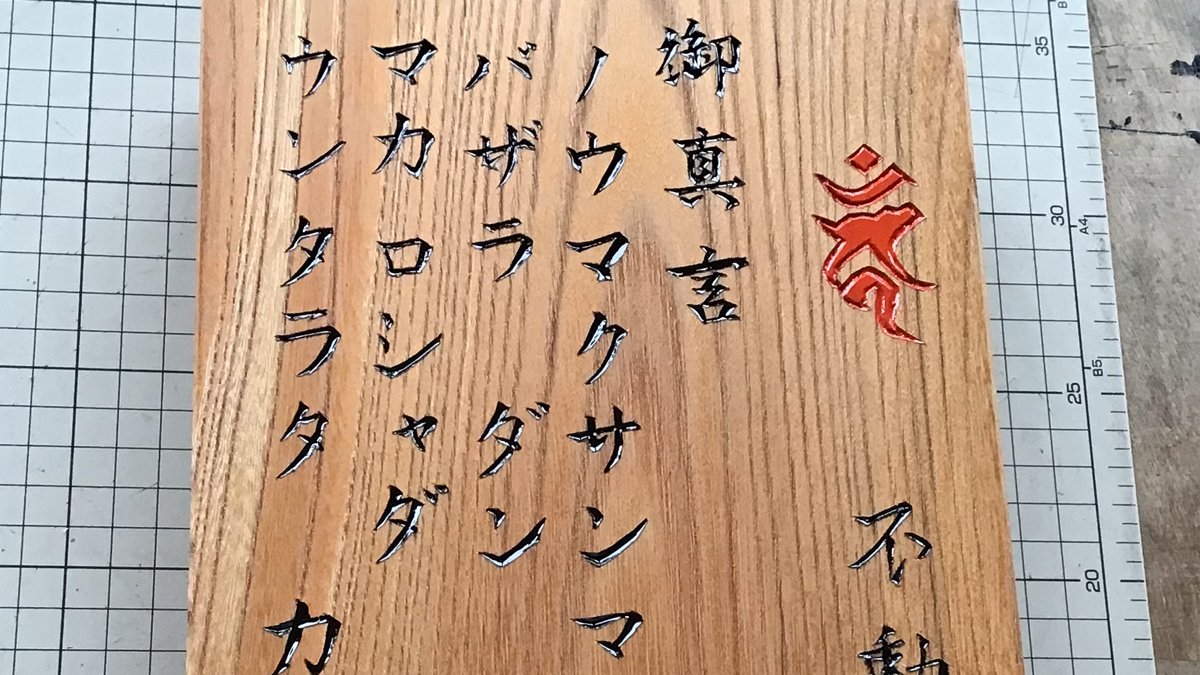 不動
御真言
ノウマクサンマ
バザラ ダン
マカロシャダ
ウンタラタ カ
35
30
A4
B5
25
20